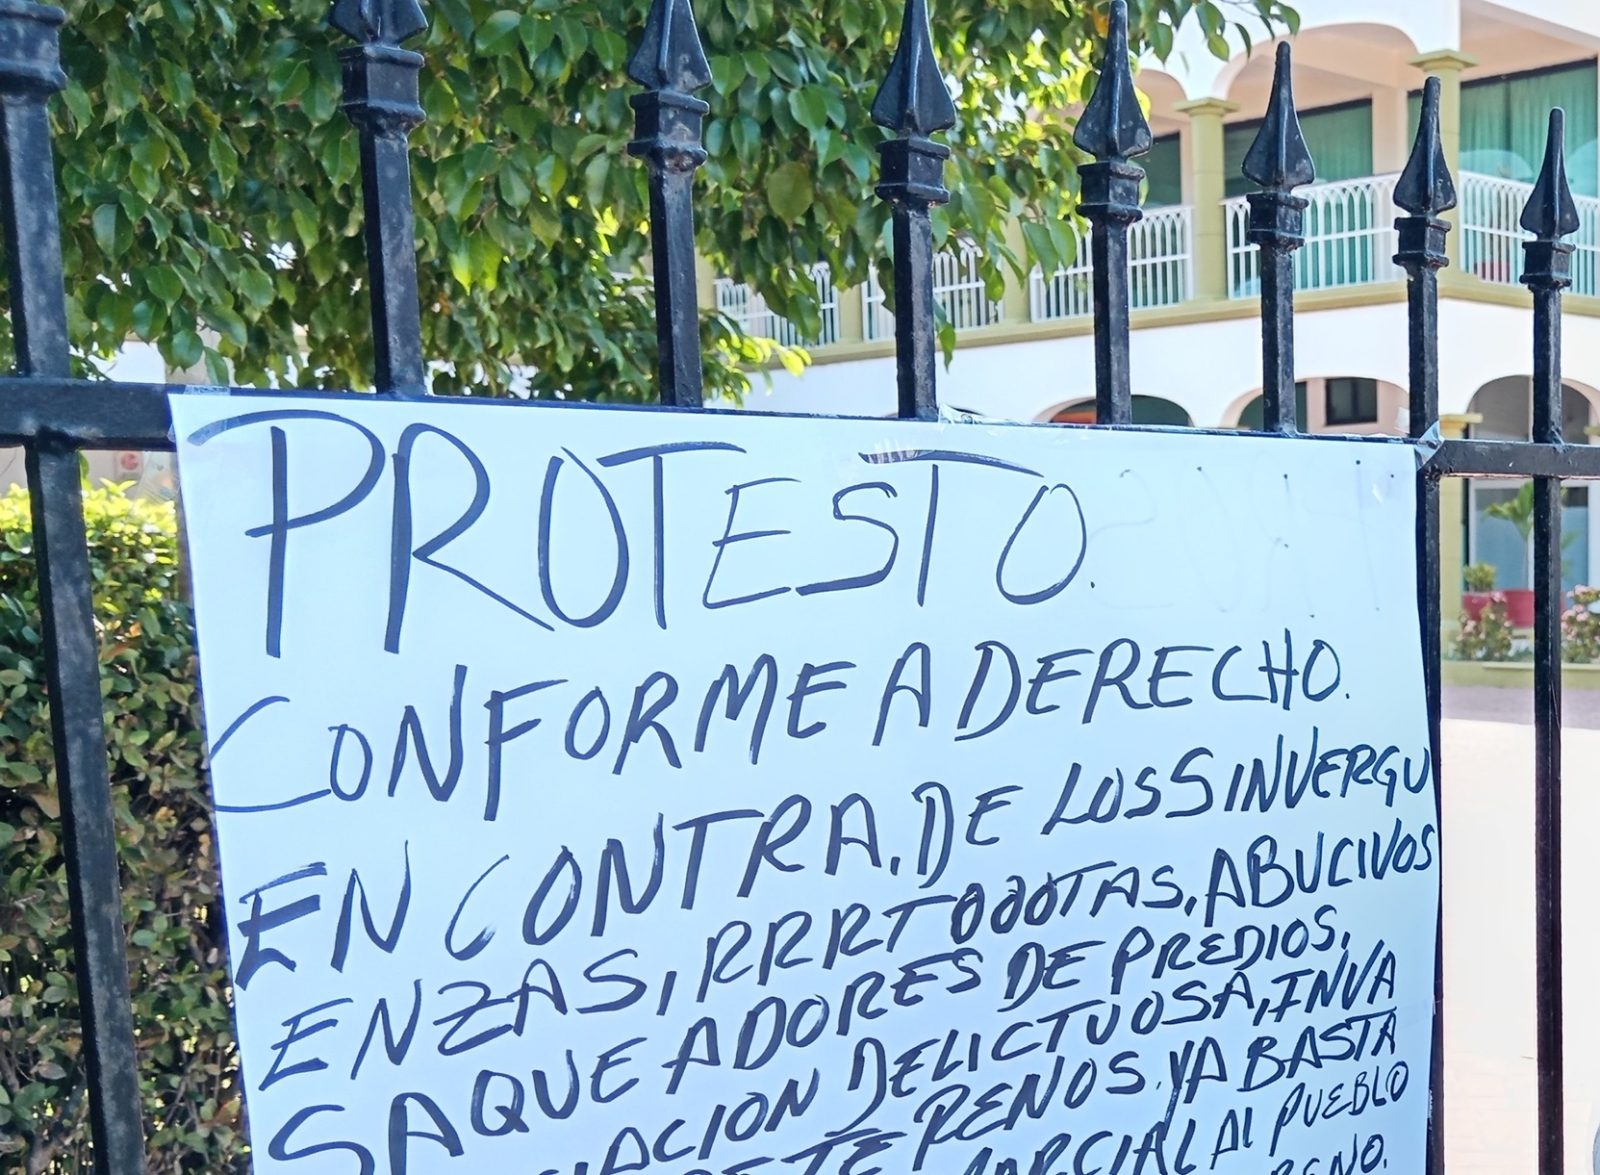 PROTESTO.
CONFORME A DERECHO.
EN CONTRA, DE LOS SINVERGU
ENZAS, RRRRTOOOTAS, ABUCIVOS
SAQUEADORES DE PREDIOS,
ACION DELICTUOSA, INVA
DE TERRENOS. YA BASTA
ARCIAL AL PUEBLO
RENO.